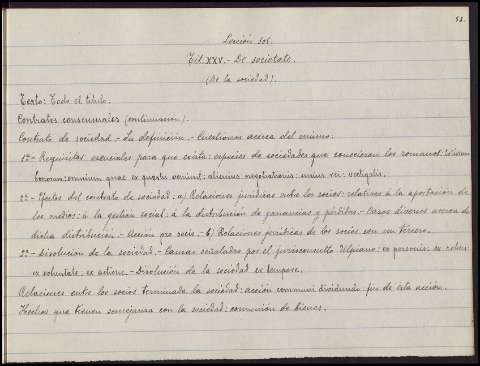 Lección 101.
Tit. XXV.- De societate.
(De la sociedad).
Texto: Todo el título.
Contratos consensuales (continuación).
Contrato de sociedad.- Su definición.- Cuestiones acerca del mismo:
1ª- Requisitos esenciales para que exista: especies de sociedades que conocieron los romanos: totorum
bonorum: omnium quae ex quaestu veniunt: alicuius negotiationis: unius rei: vectigalis.
2ª- Efectos del contrato de sociedad: a) Relaciones jurídicas entre los socios: relativas á la aportación de
los medios: á la gestión social: á la distribución de ganancias y pérdidas.- Casos diversos acerca de
dicha distribución.- Acción pro socio.- b) Relaciones jurídicas de los socios con un tercero.
3ª- Disolución de la sociedad.- Causas señaladas por el jurisconsulto Ulpiano: ex personis: ex rebus:
ex voluntate: ex actione.- Disolución de la sociedad ex tempore.
Relaciones entre los socios terminada la sociedad: acción communi dividundo: fin de esta acción.
Hechos que tienen semejanza con la sociedad: comunión de bienes.